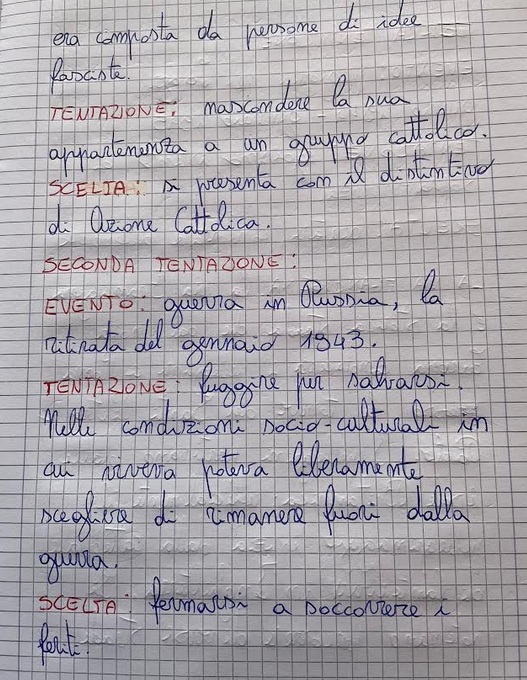 era composta da persone di idee
fasciste.
TENTAZIONE: nascondere la sua
appartenenza a un gruppo cattolico.
SCELTA: si presenta con il distintivo
di Azione Cattolica.
SECONDA TENTAZIONE:
EVENTO: guerra in Russia, la
ritirata del gennaio 1943.
TENTAZIONE: fuggire per salvarsi.
Nelle condizioni socio-culturali in
cui viveva poteva liberamente
scegliere di rimanere fuori dalla
guerra.
SCELTA: fermarsi a soccorrere i
feriti.